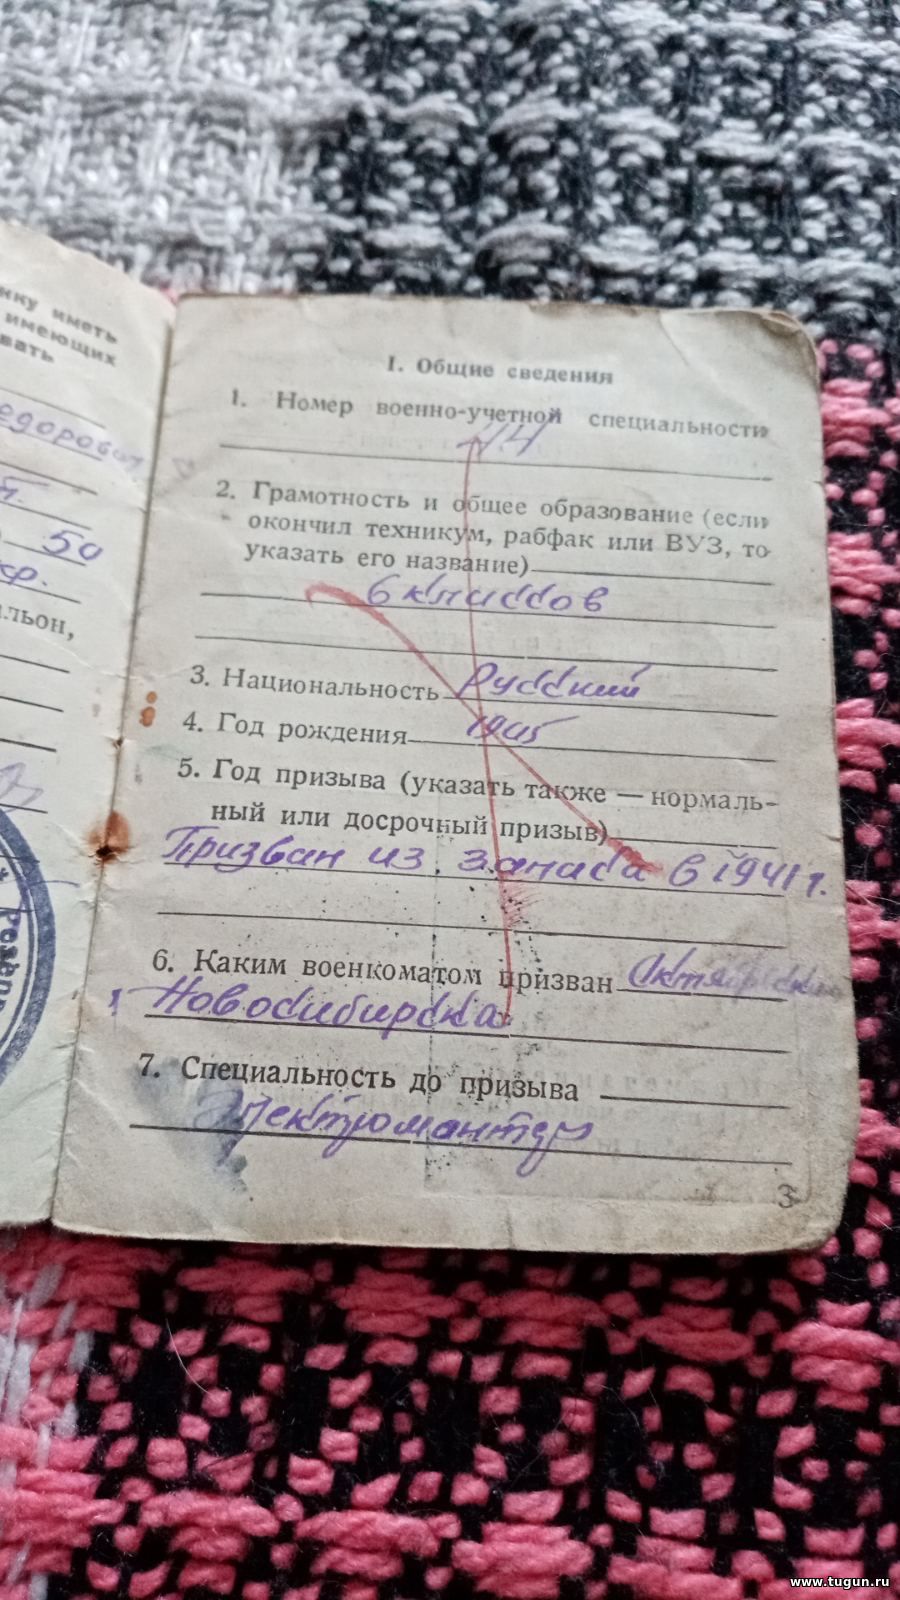 нку иметь
имеющих
вать
едорович
50
льон,
I. Общие сведения
1. Номер военно-учетной специальности
2. Грамотность и общее образование (если
окончил техникум, рабфак или ВУЗ, то
указать его название)
6 классов
3. Национальность Русский
4. Год рождения 1905
5. Год призыва (указать также — нормаль-
ный или досрочный призыв)
Призван из запаса в 1941 г.
6. Каким военкоматом призван Октябрьским
г Новосибирска
7. Специальность до призыва
Электромонтер
3
www.tugun.ru